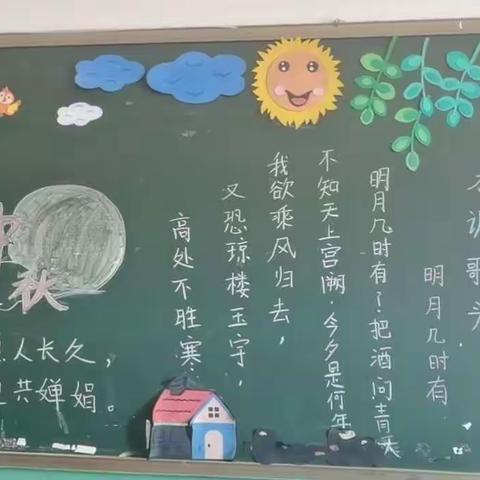 调歌头.
明月几时有
明月几时有?把酒问青天
不知天上宫阙.今夕是何年
我欲乘风归去,
又恐琼楼玉宇,
高处不胜寒
中秋
人长久,
共婵娟。